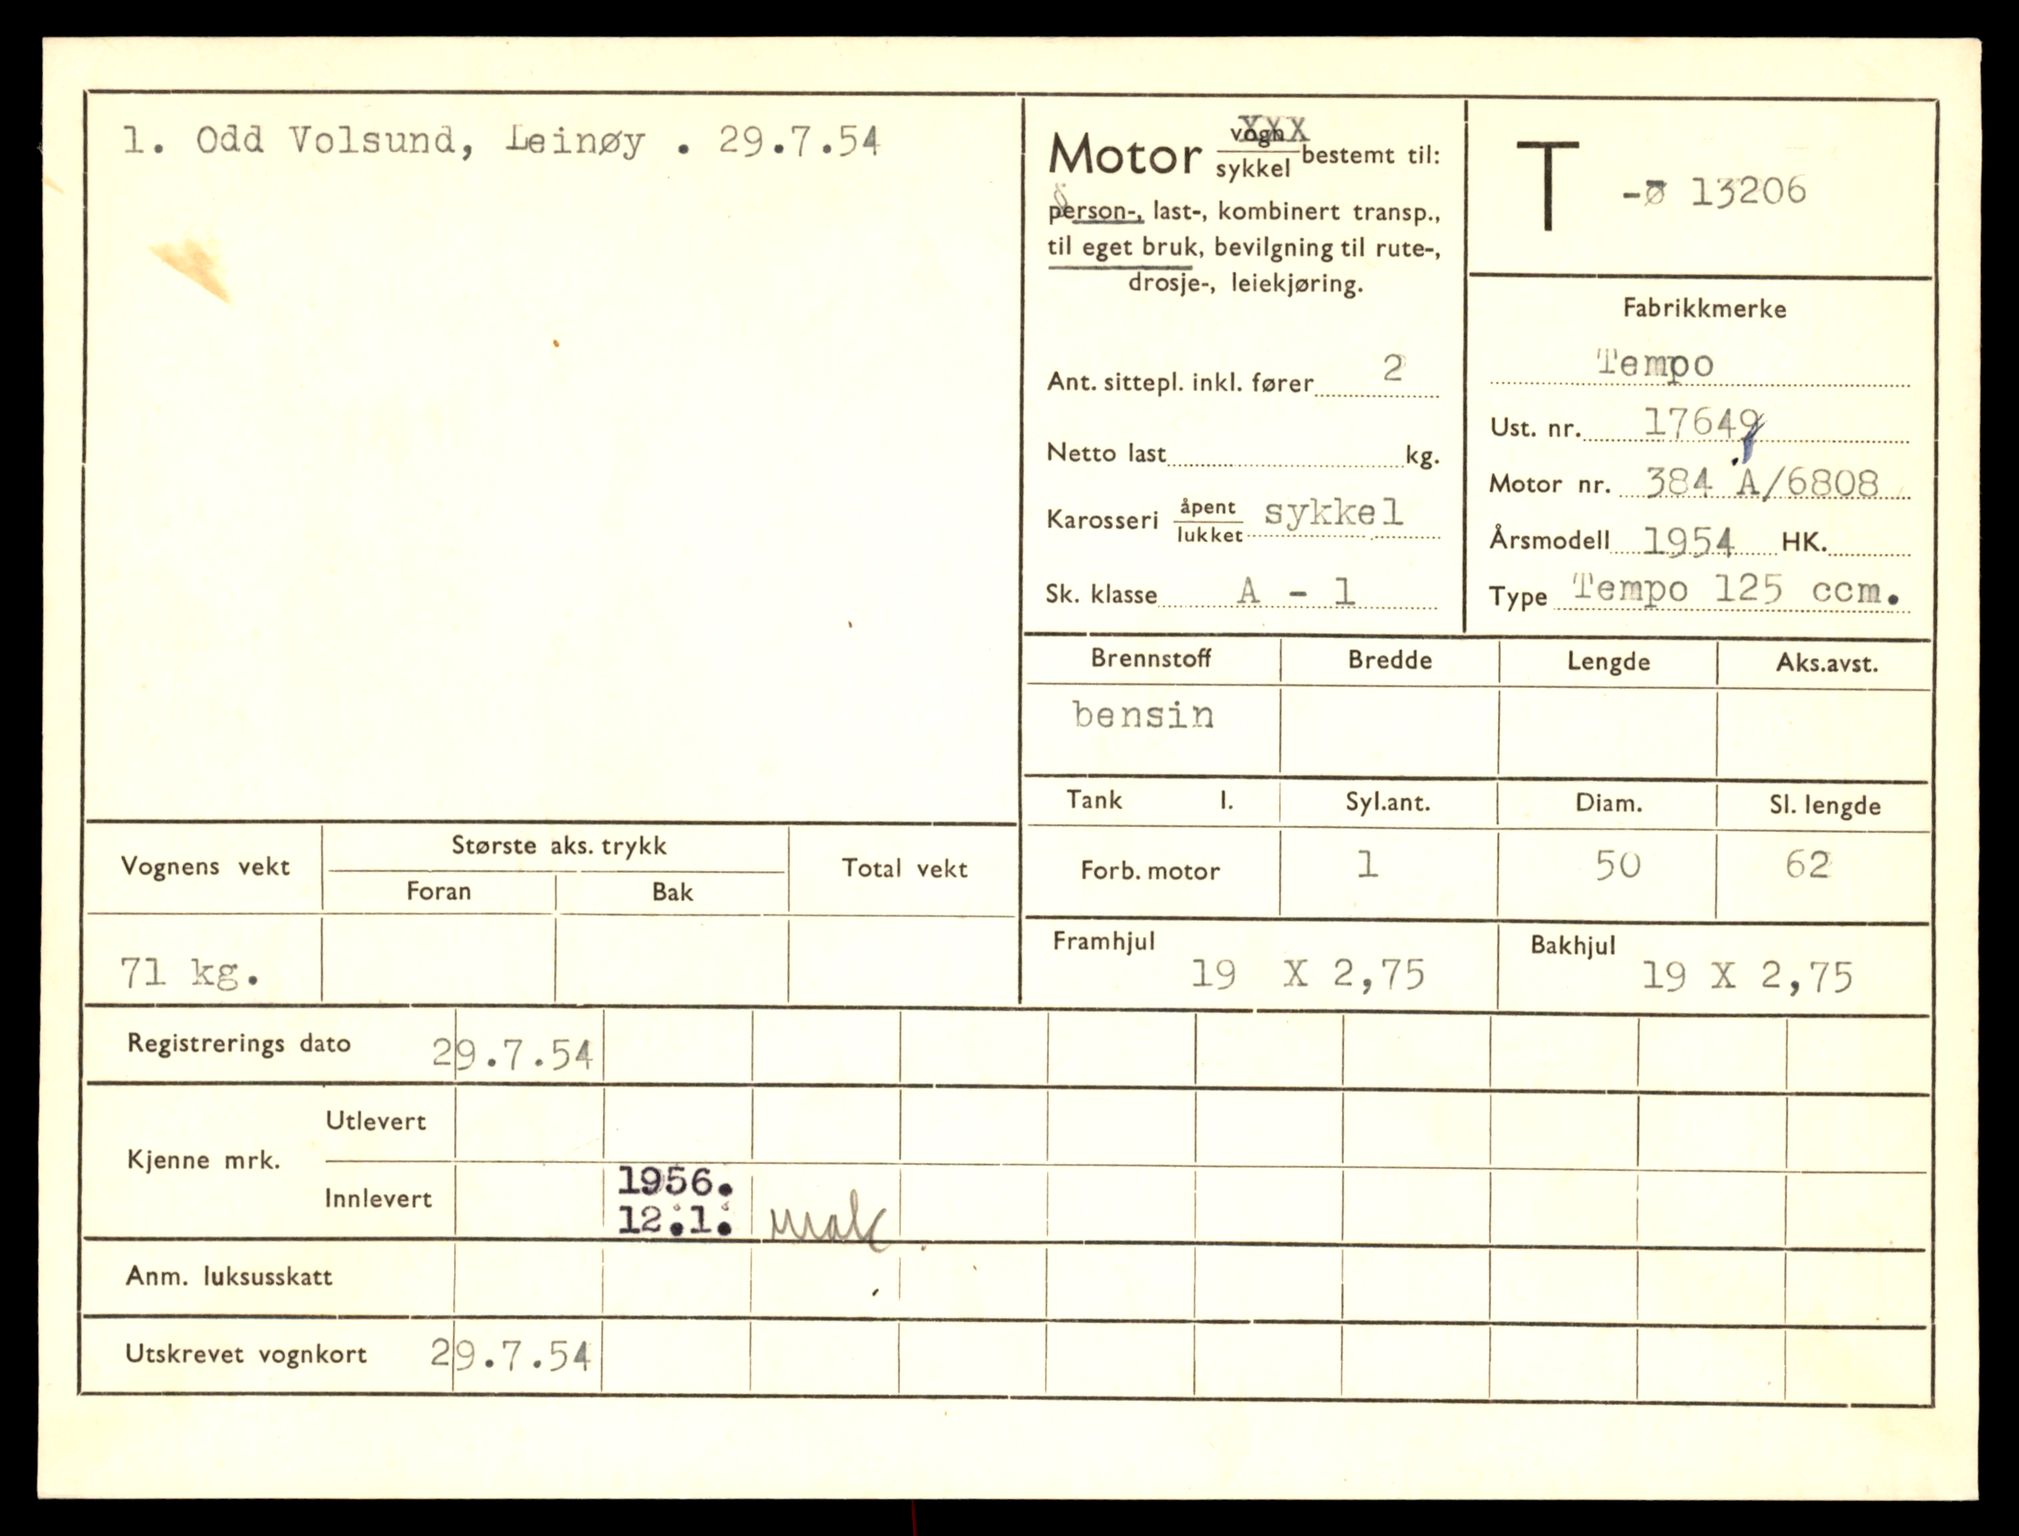 1. Odd Volsund, Leinøy . 29.7.54
Motor vogn XXX bestemt til:
sykkel
person-, last-, kombinert transp.,
til eget bruk, bevilgning til rute-,
drosje-, leiekjøring.
Ant. sittepl. inkl. fører 2
Netto last kg.
Karosseri åpent sykkel
lukket
Sk. klasse A - 1
T - 13206
Fabrikkmerke
Tempo
Ust. nr. 17649
Motor nr. 384 A/6808
Årsmodell 1954 HK.
Type Tempo 125 ccm.
Brennstoff Bredde Lengde Aks.avst.
bensin
Tank l. Syl.ant. Diam. Sl. lengde
Forb. motor 1 50 62
Framhjul 19 X 2,75 Bakhjul 19 X 2,75
Vognens vekt Største aks. trykk Total vekt
Foran Bak
71 kg.
Registrerings dato 29.7.54
Kjenne mrk. Utlevert
Innlevert 1956.
12.1.
Anm. luksusskatt
Utskrevet vognkort 29.7.54